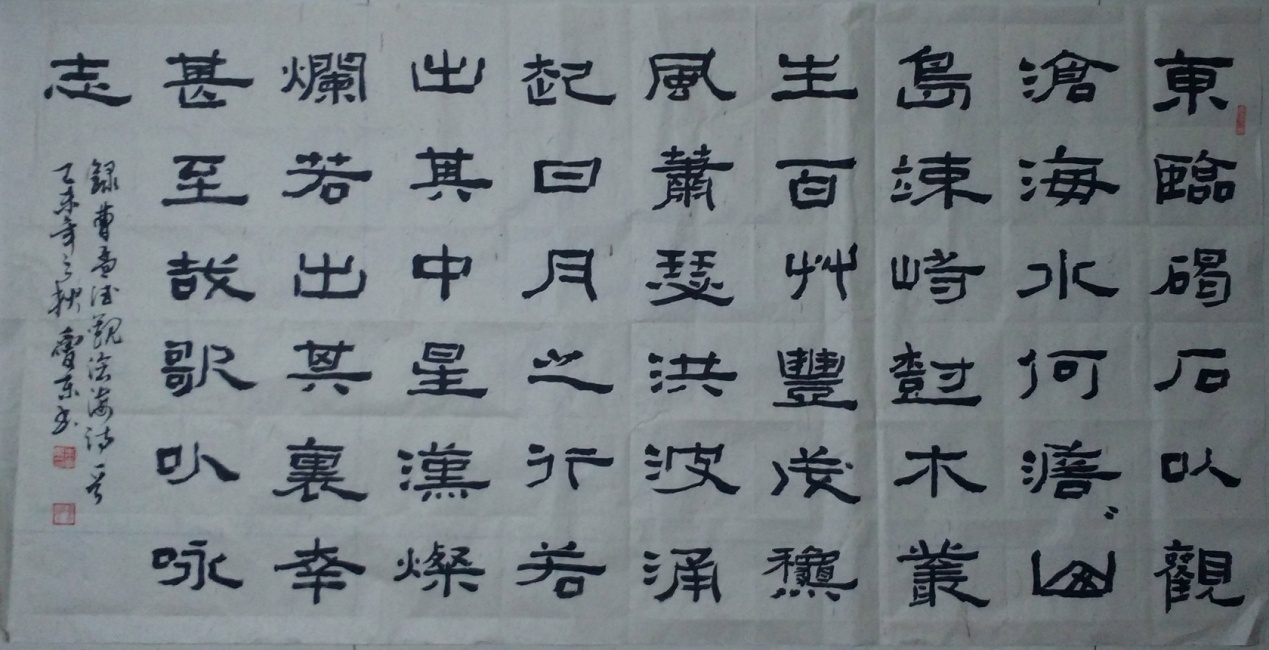 東臨碣石以觀
滄海水何澹〻山
島竦峙樹木叢
生百艸豐茂龝
風蕭瑟洪波涌
起日月之行若
出其中星漢燦
爛若出其裏幸
甚至哉歌以咏
志
錄曹孟德觀滄海詩一首
乙未年之秋 东书